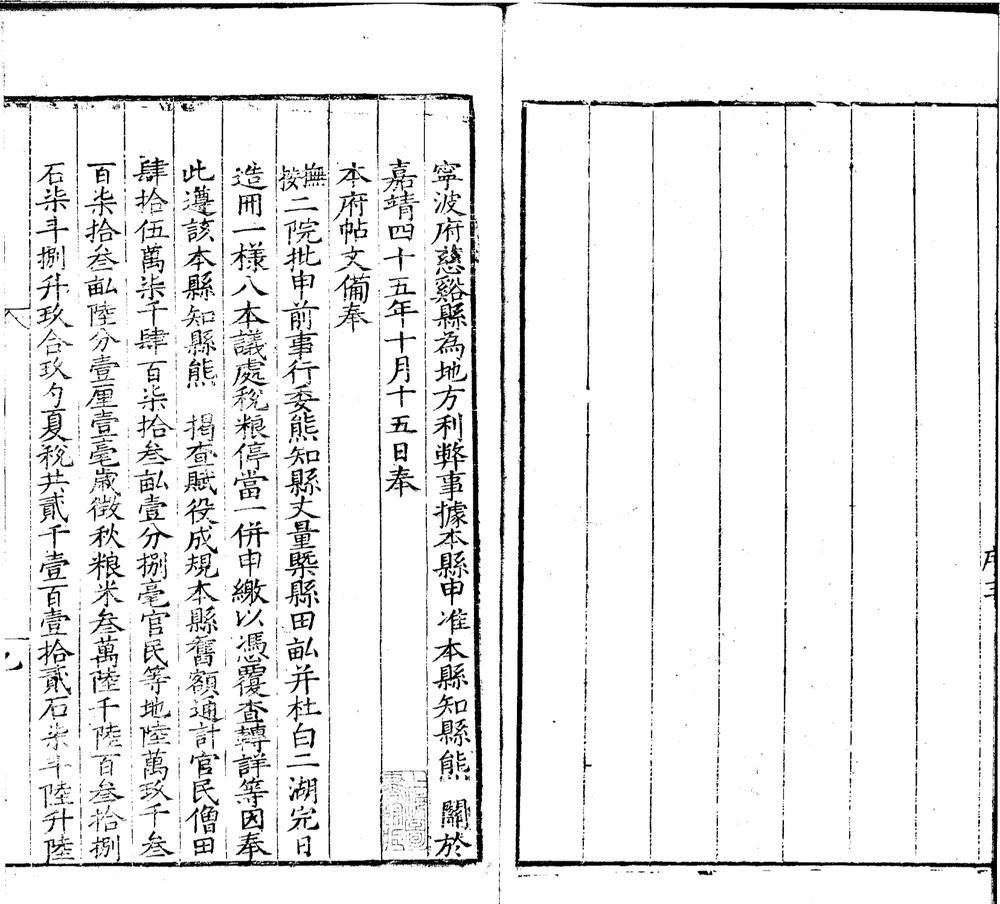 寧波府慈谿縣為地方利弊事據本縣申准本縣知縣熊 關於
嘉靖四十五年十月十五日奉
本府帖文備奉
撫按二院批申前事行委熊知縣丈量槩縣田畆并杜白二湖完日
造冊一樣八本議處稅粮停當一併申繳以憑覆查轉詳等因奉
此遵該本縣知縣熊 揭查賦役成規本縣舊額通計官民僧田
肆拾伍萬柒千肆百柒拾叁畆壹分捌毫官民等地陸萬玖千叁
百柒拾叁畆陸分壹厘壹毫歲徵秋粮米叁萬陸千陸百叁拾捌
石柒斗捌升玖合玖勺夏稅共貳千壹百壹拾貳石柒斗陸升陸